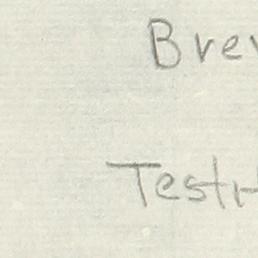 Brev
Test